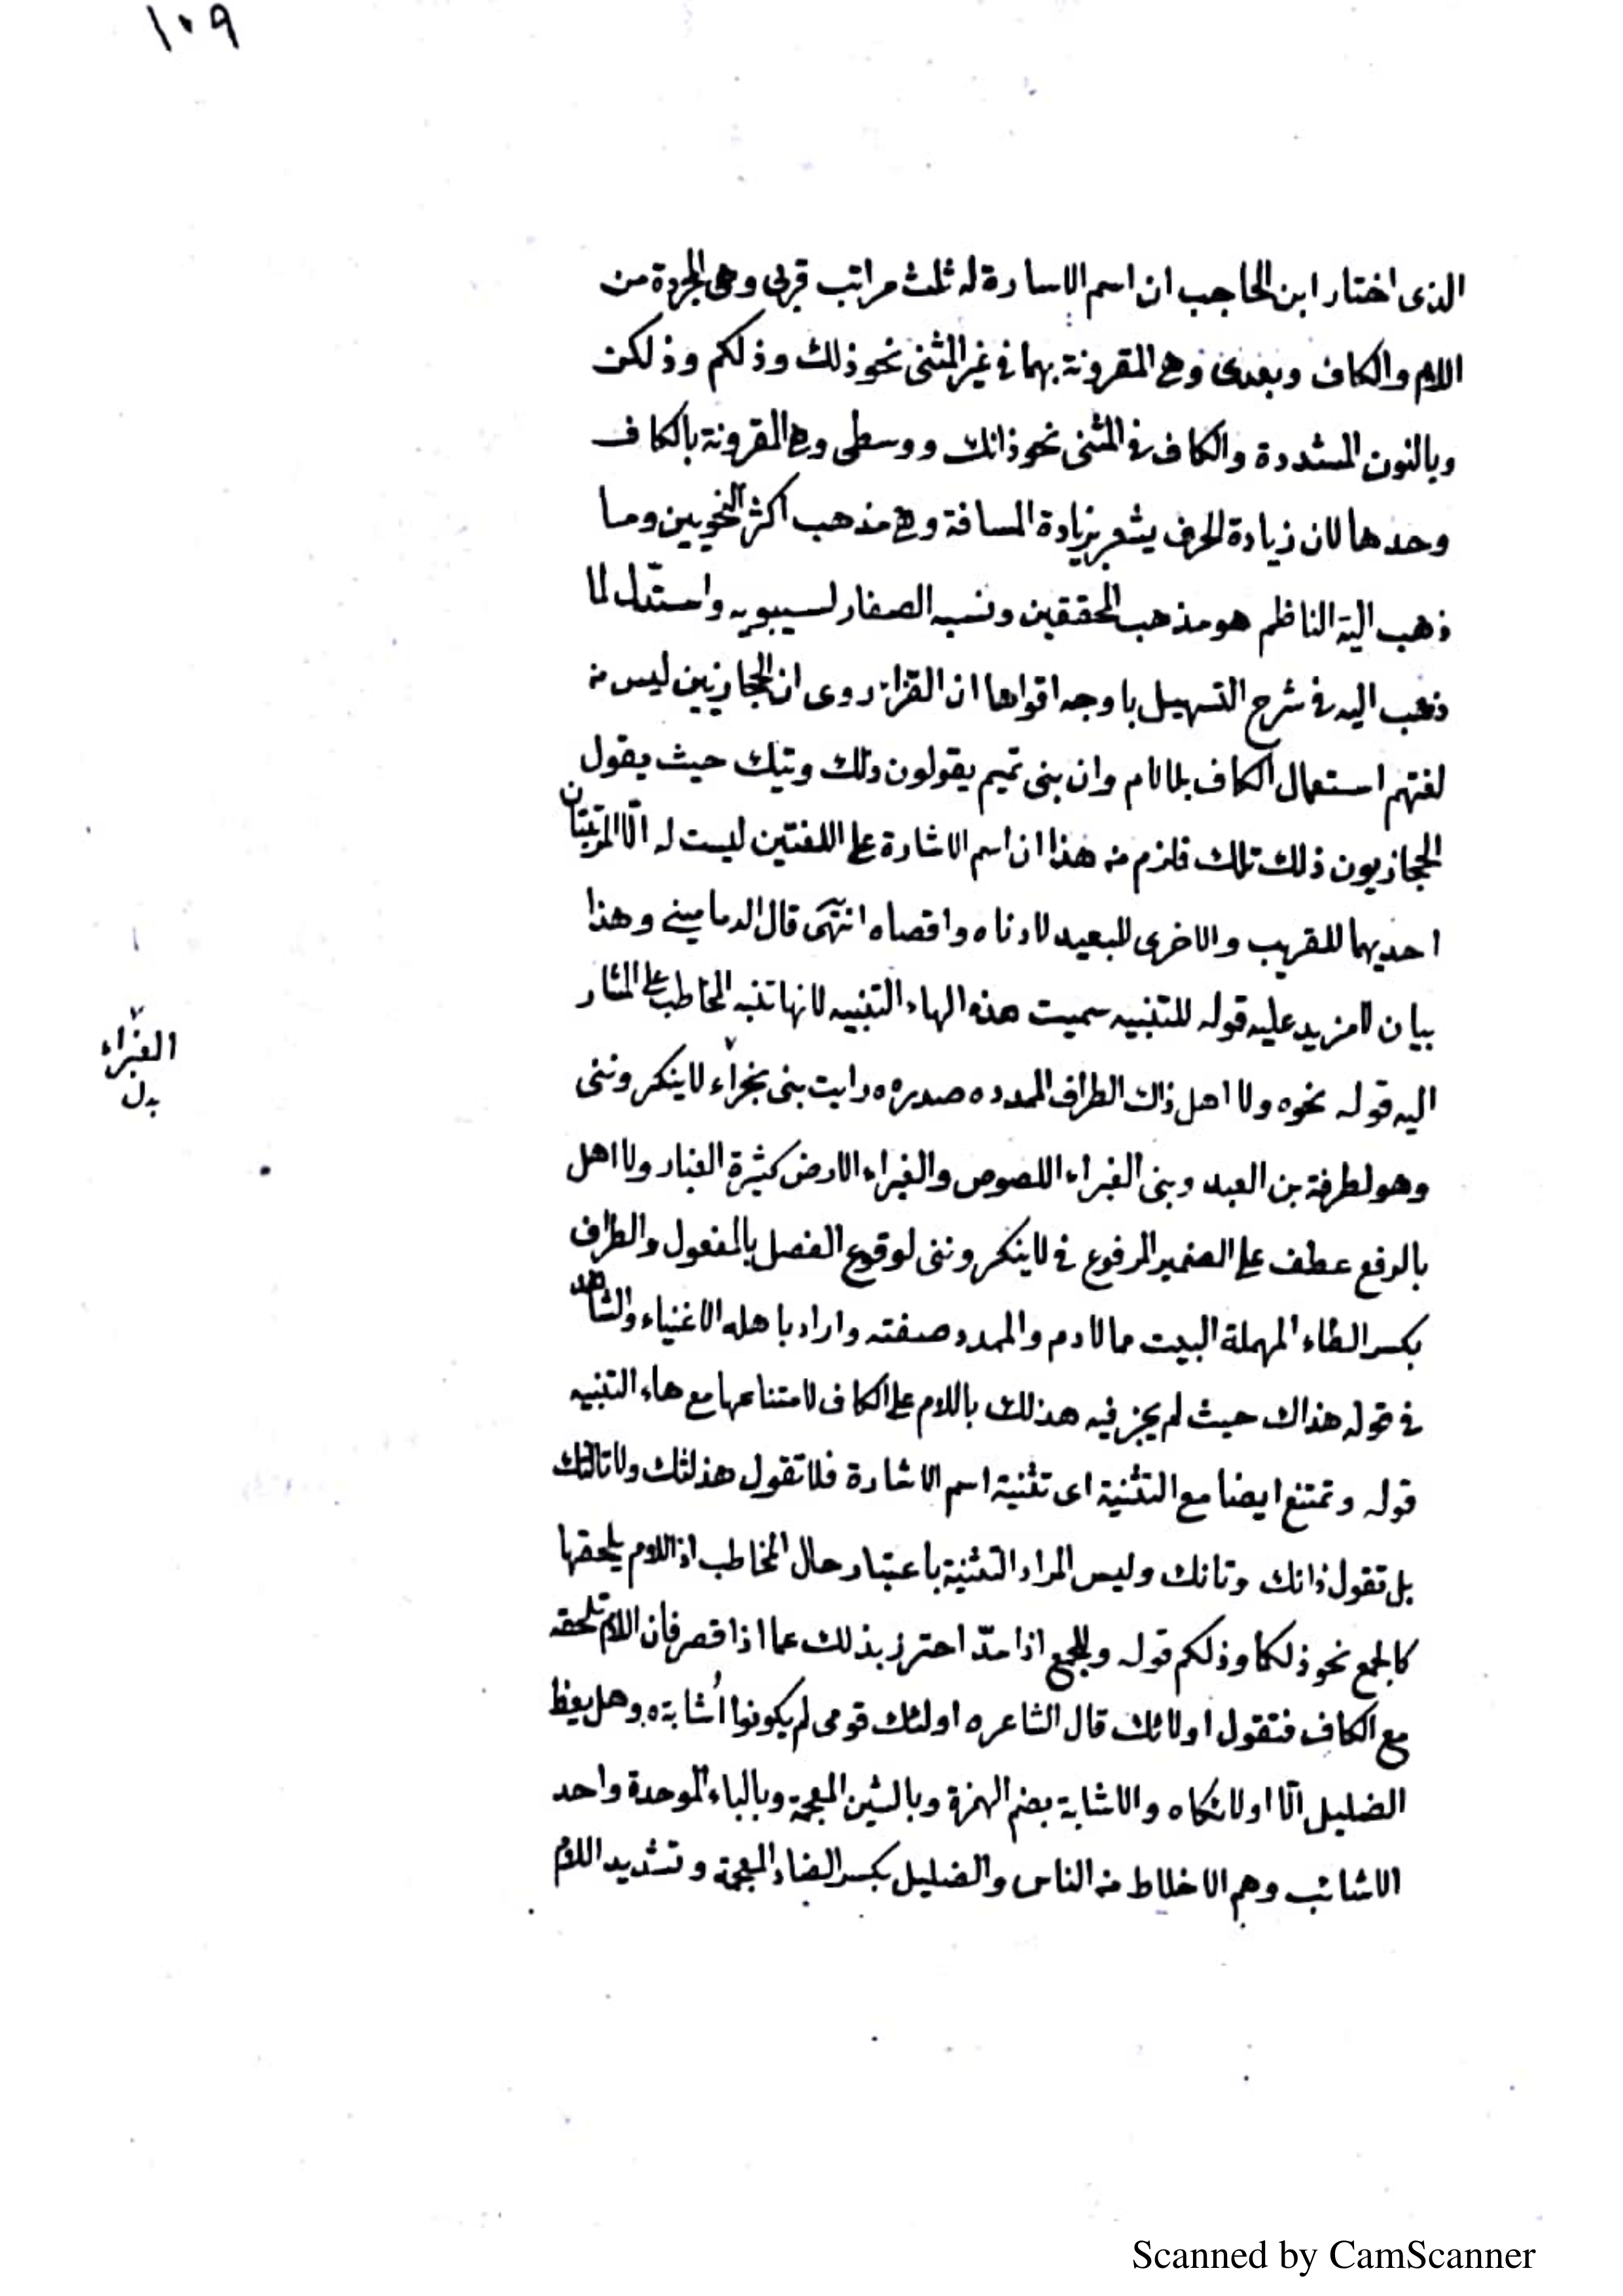 ١٠٩
الذى اختار ابن الحاجب ان اسم الاسارة له ثلث مراتب قربى وهى المجردة من
اللام والكاف وبعدى وهى المقرونة بهما فى غير المثنى نحو ذلك وذلكم وذلكن
وبالنون المشددة والكاف فى المثنى نحو ذانك ووسطى وهى المقرونة بالكاف
وحدها لان زيادة الحرف يشعر بزيادة المسافة وهى مذهب اكثر النحويين وما
ذهب الية الناظم هو مذهب المحققين ونسبه الصفار لسيبويه واستدل لما
ذهب اليه فى شرح التسهيل باوجه اقواها ان الفراء روى ان الحجازيين ليس من
لغتهم استعمال الكاف بلا لام وان بنى تميم يقولون ذلك وتيك حيث يقول
الحجازيون ذلك تلك فلزم من هذا ان اسم الاشارة على اللغتين ليست له الّا المرتبتان
احديهما للقريب والاخرى للبعيد لادناه واقصاه انتهى قال الدمامينى وهذا
بيان لا مزيد عليه قوله للتنبيه سميت هذه الهاء التنبيه لانها تنبه المخاطب على المشار
اليه قوله نحوه ولا اهل ذاك الطراف الممدده صدره ه رايت بنى بخراء لا ينكروننى
وهو لطرفة بن العبد وبنى الغبراء اللصوص والغبراء الارض كثيرة الغبار ولا اهل
بالرفع عطف على الضمير المرفوع فى لا ينكروننى لوقوع الفصل بالمفعول والطراف
بكسر الطاء المهملة البيت من الادم والممدد صفته واراد باهله الاغنياء والشاهد
فى قوله هذاك حيث لم يجز فيه هذلك باللام على الكاف لامتناعها مع هاء التنبيه
قوله وتمتنع ايضا مع التثنية اى تثنية اسم الاشارة فلا تقول هذلنك ولا تالنك
بل تقول ذانك وتانك وليس المراد التثنية باعتبار حال المخاطب اذ اللام يلحقها
كالجمع نحو ذلكما وذلكم قوله وللجمع اذا مدّ احترز بذلك عما اذا قصر فان اللام تلحقه
مع الكاف فتقول اولائك قال الشاعر ه اولئك قومى لم يكونوا اُشابة ه وهل يعظ
الضليل الّا اولائكاه والاشابة بضم الهمزة وبالشين المعجمة وبالباء الموحدة واحد
الاشائب وهم الاخلاط من الناس والضليل بكسر الضاد المعجمة وتشديد اللام
الغبراء
بدل
Scanned by CamScanner